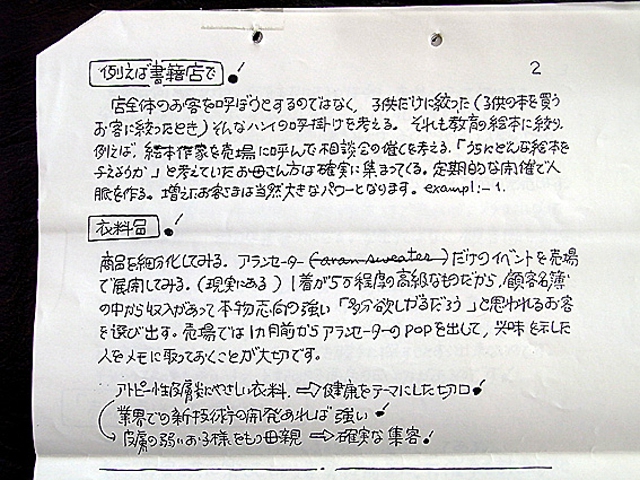 例えば書籍店で!
2
店全体のお客を呼ぼうとするのではなく、子供だけに絞った(子供の本を買う
お客に絞ったとき)そんなハンイの呼掛けを考える。それも教育の絵本に絞り、
例えば、絵本作家を売場に呼んで相談会の催しを考える。「うちにどんな絵本を
与えようか」と考えていたお母さん方は確実に集まってくる。定期的な開催で人
脈を作る。増えたお客さまは当然大きなパワーとなります。exampl:-1.
衣料品!
商品を細分化してみる。アランセーター(aran sweater)だけのイベントを売場
で展開してみる。(現実にある)1着が5万程度の高級なものだから、顧客名簿
の中から収入があって本物志向の強い「多分欲しがるだろう」と思われるお客
を選び出す。売場では1カ月前からアランセーターのPOPを出して、興味を示した
人をメモに取っておくことが大切です。
アトピー性皮膚炎にやさしい衣料.⇨健康をテーマにした切口!
業界での新技術の開発あれば強い!
皮膚の弱いお子様をもつ母親⇨確実な集客!